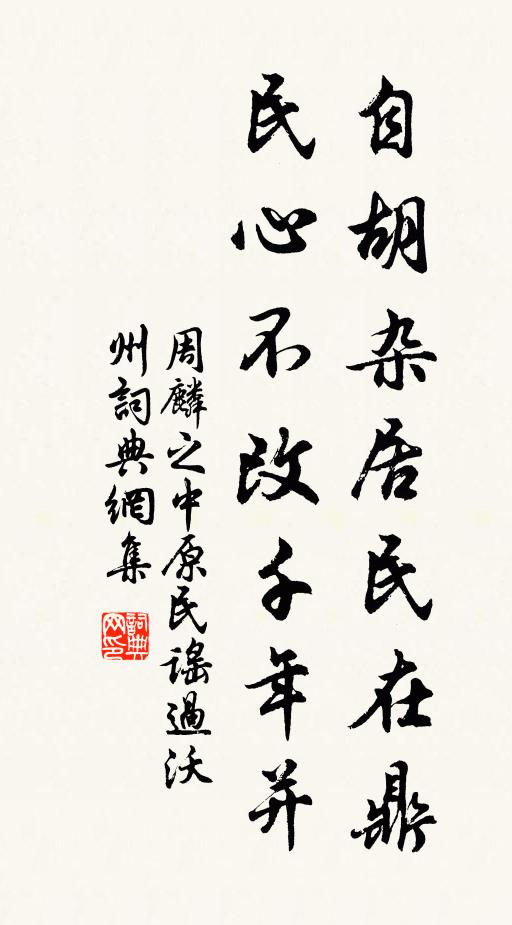 自胡杂居民在鼎
民心不改千年并
周麟之中原民谣過沃
州詞典網集
詞典网印